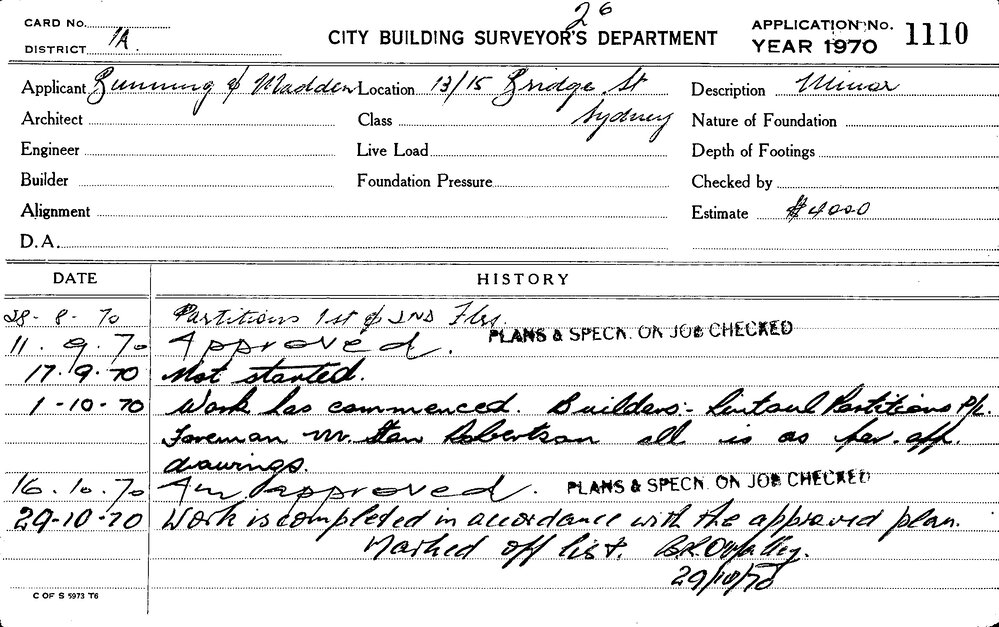 26
CARD No.
DISTRICT 1A.
CITY BUILDING SURVEYOR'S DEPARTMENT
APPLICATION No. 1110
YEAR 1970
Applicant Bunning & Madden Location 13/15 Bridge St Description Minor
Architect Class Sydney Nature of Foundation
Engineer Live Load Depth of Footings
Builder Foundation Pressure Checked by
Alignment Estimate $4000
D.A.
DATE HISTORY
28-8-70 Partitions 1st & 2ND Flrs.
11.9.70 Approved. PLANS & SPECN. ON JOB CHECKED
17.9.70 Not started.
1-10-70 Work has commenced. Builders:- Partitions P/L.
Foreman Mr. Stan Robertson all is as per app.
drawings.
16.10.70 Am approved. PLANS & SPECN. ON JOB CHECKED
29-10-70 Work is completed in accordance with the approved plan.
Marked off list.
29/10/70
C OF S 5973 T6